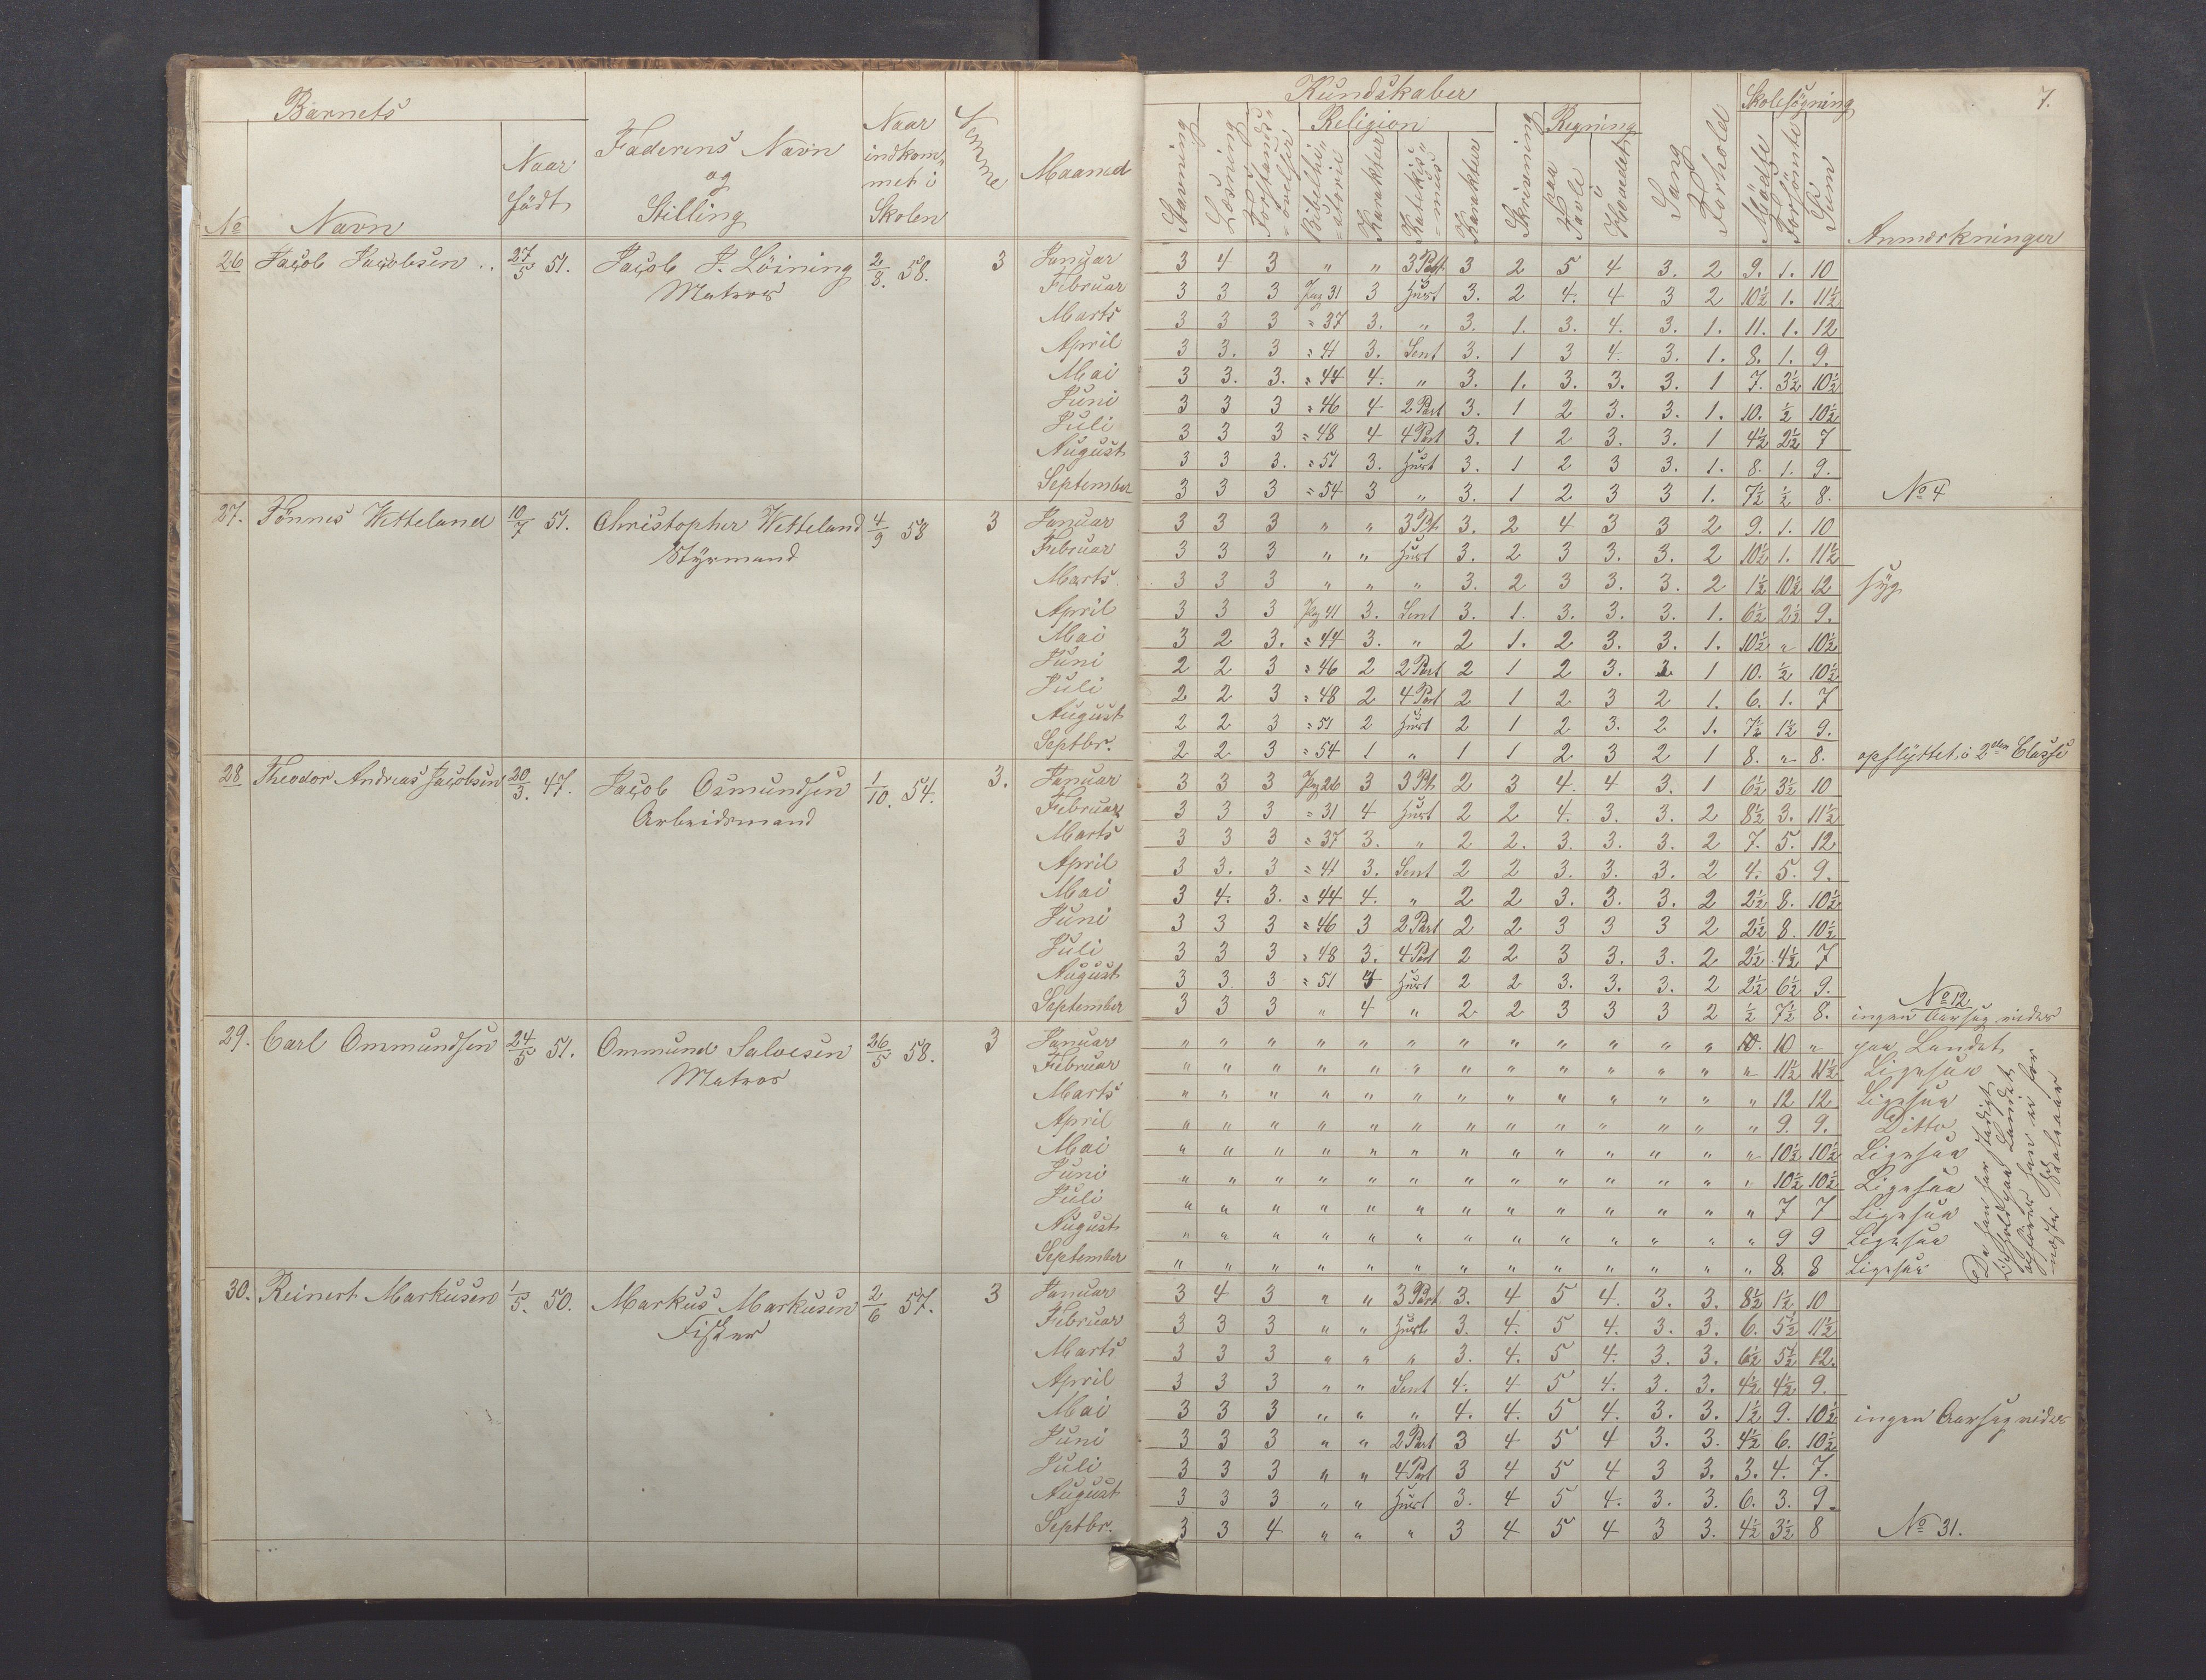 Barnets
Faderens Navn
og
Stilling
Naar
indkom„
met i
Skolen
Nemme
Maaned
Naar
födt
No Navn
Kundskaber
Religion
Regning
Skolesøgning
7.
Stavning
Læsning
Forstands„
-övelser
Bibelhi„
-storie
Karakter
Katekis„
-mus
Karakter
Skrivning
Paa
Tavle
i
Hovedet
Sang
Forhold
Mödte
Forsömte
Sum
Anmærkninger
26 Jacob Jacobsen .. 27/5 51. Jacob J. Löining 2/3. 58. 3 Januar 3 4 3 „ „ 3 Part 3 2 5 4 3. 2 9. 1. 10
Matros Februar 3 3 3 Pag 31 3 Hust 3. 2 4. 4 3 2 10½ 1. 11½
Marts 3 3 3 „ 37 3. „ 3. 1. 3. 4. 3. 1. 11. 1. 12
April 3 3. 3 „ 41 3. Sent 3. 1 3 4. 3. 1. 8. 1. 9.
Mai 3 3. 3. „ 44 4. „ 3. 1. 3. 3. 3. 1 7. 3½ 10½
Juni 3 3 3 „ 46 4 2 Part 3. 1 2 3. 3. 1. 10. ½ 10½
Juli 3 3 3 „ 48 4 4 Part 3. 1 2 3. 3. 1 4½ 2½ 7
August 3 3 3. „ 51 3. Hust 3. 1 2 3 3. 1. 8. 1. 9.
September 3 3 3 „ 54 3 „ 3. 1 2 3 3 1. 7½ ½ 8. No 4
27. Tönnes Wetteland 10/7 51. Christopher Wetteland 4/9 58 3 Januar 3 3 3 „ „ 3 Pt 3. 2 4 3 3 2 9. 1. 10
Styrmand Februar 3 3 3 „ „ Hust 3. 2 3 3. 3. 2 10½ 1. 11½
Marts 3 3 3 „ „ „ 3. 2 3 3. 3. 2 1½ 10½ 12 syg
April 3 3 3 Pag 41 3. Sent 3. 1. 3. 3. 3. 1. 6½ 2½ 9.
Mai 3 2 3. „ 44 3. „ 2 1. 2 3. 3. 1. 10½ „ 10½
Juni 2 2 3 „ 46 2 2 Part 2 1 2 3. 3 1 10. ½ 10½
Juli 2 2 3 „ 48 2 4 Part 2 1 2 3 2 1. 6. 1. 7
August 2 2 3 „ 51 2 Hust 2 1 2 3. 2 1. 7½ 1½ 9.
Septbr. 2 2 3 „ 54 1 „ 1 1 2 3 2 1 8. „ 8. opflyttet i 2den Classe
28 Theodor Andreas Jacobsen 20/3. 47. Jacob Osmundsen 1/10. 54. 3. Januar 3 3 3 Pag 26 3 3 Pt. 2 3 4. 4 3. 1 6½ 3½ 10
Arbeidsmand Februar 3 3 3 „ 31 4 Hust 2 2 4. 3. 3. 2 8½ 3. 11½
Marts 3 3 3 „ 37 3. „ 2 2. 3. 3. 3. 2 7. 5. 12
April 3 3. 3 „ 41 3. Sent 2 2 3. 3. 3. 2 4. 5. 9.
Mai 3 4. 3. „ 44 4. „ 2 2 3. 3. 3. 2 2½ 8. 10½
Juni 3 3 3 „ 46 3 2 Part 2 2 3 3 3 2 2½ 8. 10½
Juli 3 3 3 „ 48 3. 4 Part 2 2 3 3. 3. 2 2½ 4½ 7
August 3 3 3 „ 51 4 Hust 2 2 3. 3. 3. 2 2½ 6½ 9.
September 3 3 3 „ 4 „ 2 2 3 3 3 2 ½ 7½ 8. No 12
ingen Aarsag vides
29. Carl Ommundsen 24/5 51. Ommund Salvesen 26/5 58. 3 Januar „ „ „ „ „ „ „ „ „ „ „ „ 10. 10 „ paa Landet
Matros Februar „ „ „ „ „ „ „ „ „ „ „ „ „ 11½ 11½ Ligesaa
Marts „ „ „ „ „ „ „ „ „ „ „ „ „ 12 12 Ligesaa
April „ „ „ „ „ „ „ „ „ „ „ „ „ 9. 9. Ditto
Mai „ „ „ „ „ „ „ „ „ „ „ „ „ 10½ 10½ Ligesaa
Juni „ „ „ „ „ „ „ „ „ „ „ „ „ 10½ 10½ Ligesaa
Juli „ „ „ „ „ „ „ „ „ „ „ „ „ 7 7 Ligesaa
August „ „ „ „ „ „ „ „ „ „ „ „ „ 9 9 Ligesaa
September „ „ „ „ „ „ „ „ „ „ „ „ „ 8. 8 Ligesaa
Da han har stadigt
Ophold paa Landet
opføres han ei for
næste Skoleaar
30. Reinert Markusen 1/5. 50. Markus Markusen 2/6 57. 3 Januar 3 4 3 „ „ 3 Part 3. 4 5 4. 3. 3. 8½ 1½ 10
Fisker Februar 3 3 3 „ „ Hust 3. 4. 5 4. 3. 3. 6. 5½ 11½
Marts 3 3 3 „ „ „ 3. 4. 5 4. 3. 3. 6½ 5½ 12.
April 3 3 3 „ „ Sent 4. 4 5 4. 3. 3. 4½ 4½ 9.
Mai 3 3 3 „ „ „ 4. 4. 5 4. 3. 3. 1½ 9. 10½ ingen Aarsag vides
Juni 3 3 3 „ „ 2 Part 3 4 5 4 3. 3. 4½ 6. 10½
Juli 3 3 3 „ „ 4 Part 3 4 5 4 3 3. 3. 4. 7.
August 3 3 3 „ „ Hust 3. 4 5 4. 3. 3. 6. 3. 9.
Septbr. 3 3 4 „ „ „ 3 4 5 4 3 3. 4½ 3½ 8 No 31.